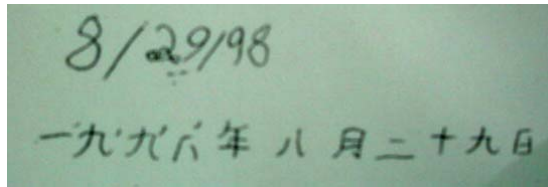 8/29/98
一九九八年八月二十九日